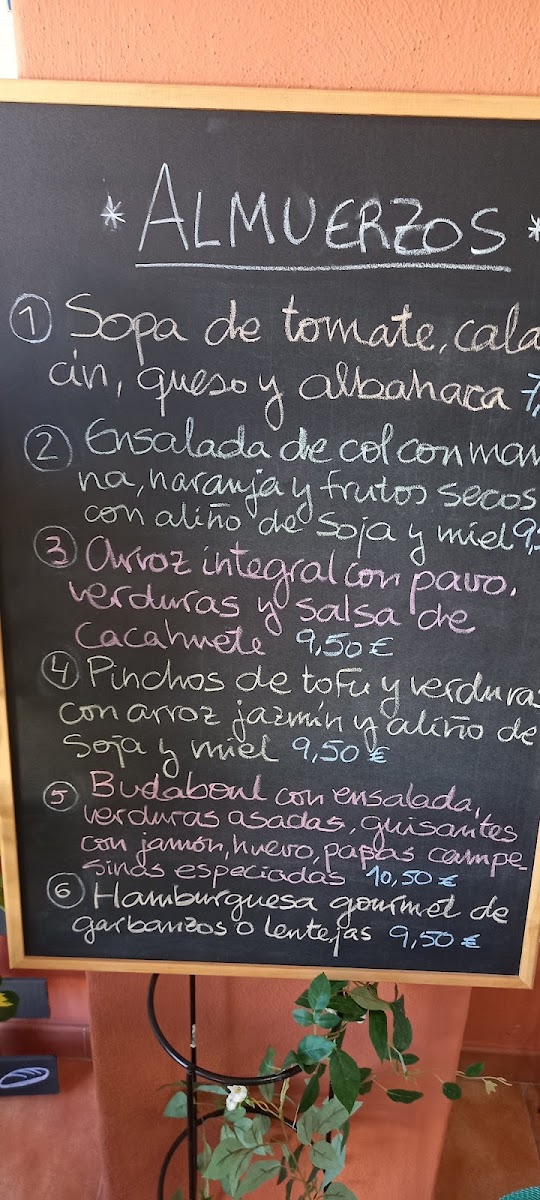 * ALMUERZOS *
① Sopa de tomate, cala
cín, queso y albahaca 7,
② Ensalada de col con man
na, naranja y frutos secos
con aliño de soja y miel 9,5
③ Arroz integral con pavo,
verduras y salsa de
cacahuete 9,50 €
④ Pinchos de tofu y verduras
con arroz jazmín y aliño de
soja y miel 9,50 €
⑤ Budabowl con ensalada,
verduras asadas, guisantes
con jamón, huevo, papas campe-
sinas especiadas 10,50 €
⑥ Hamburguesa gourmet de
garbanzos o lentejas 9,50 €